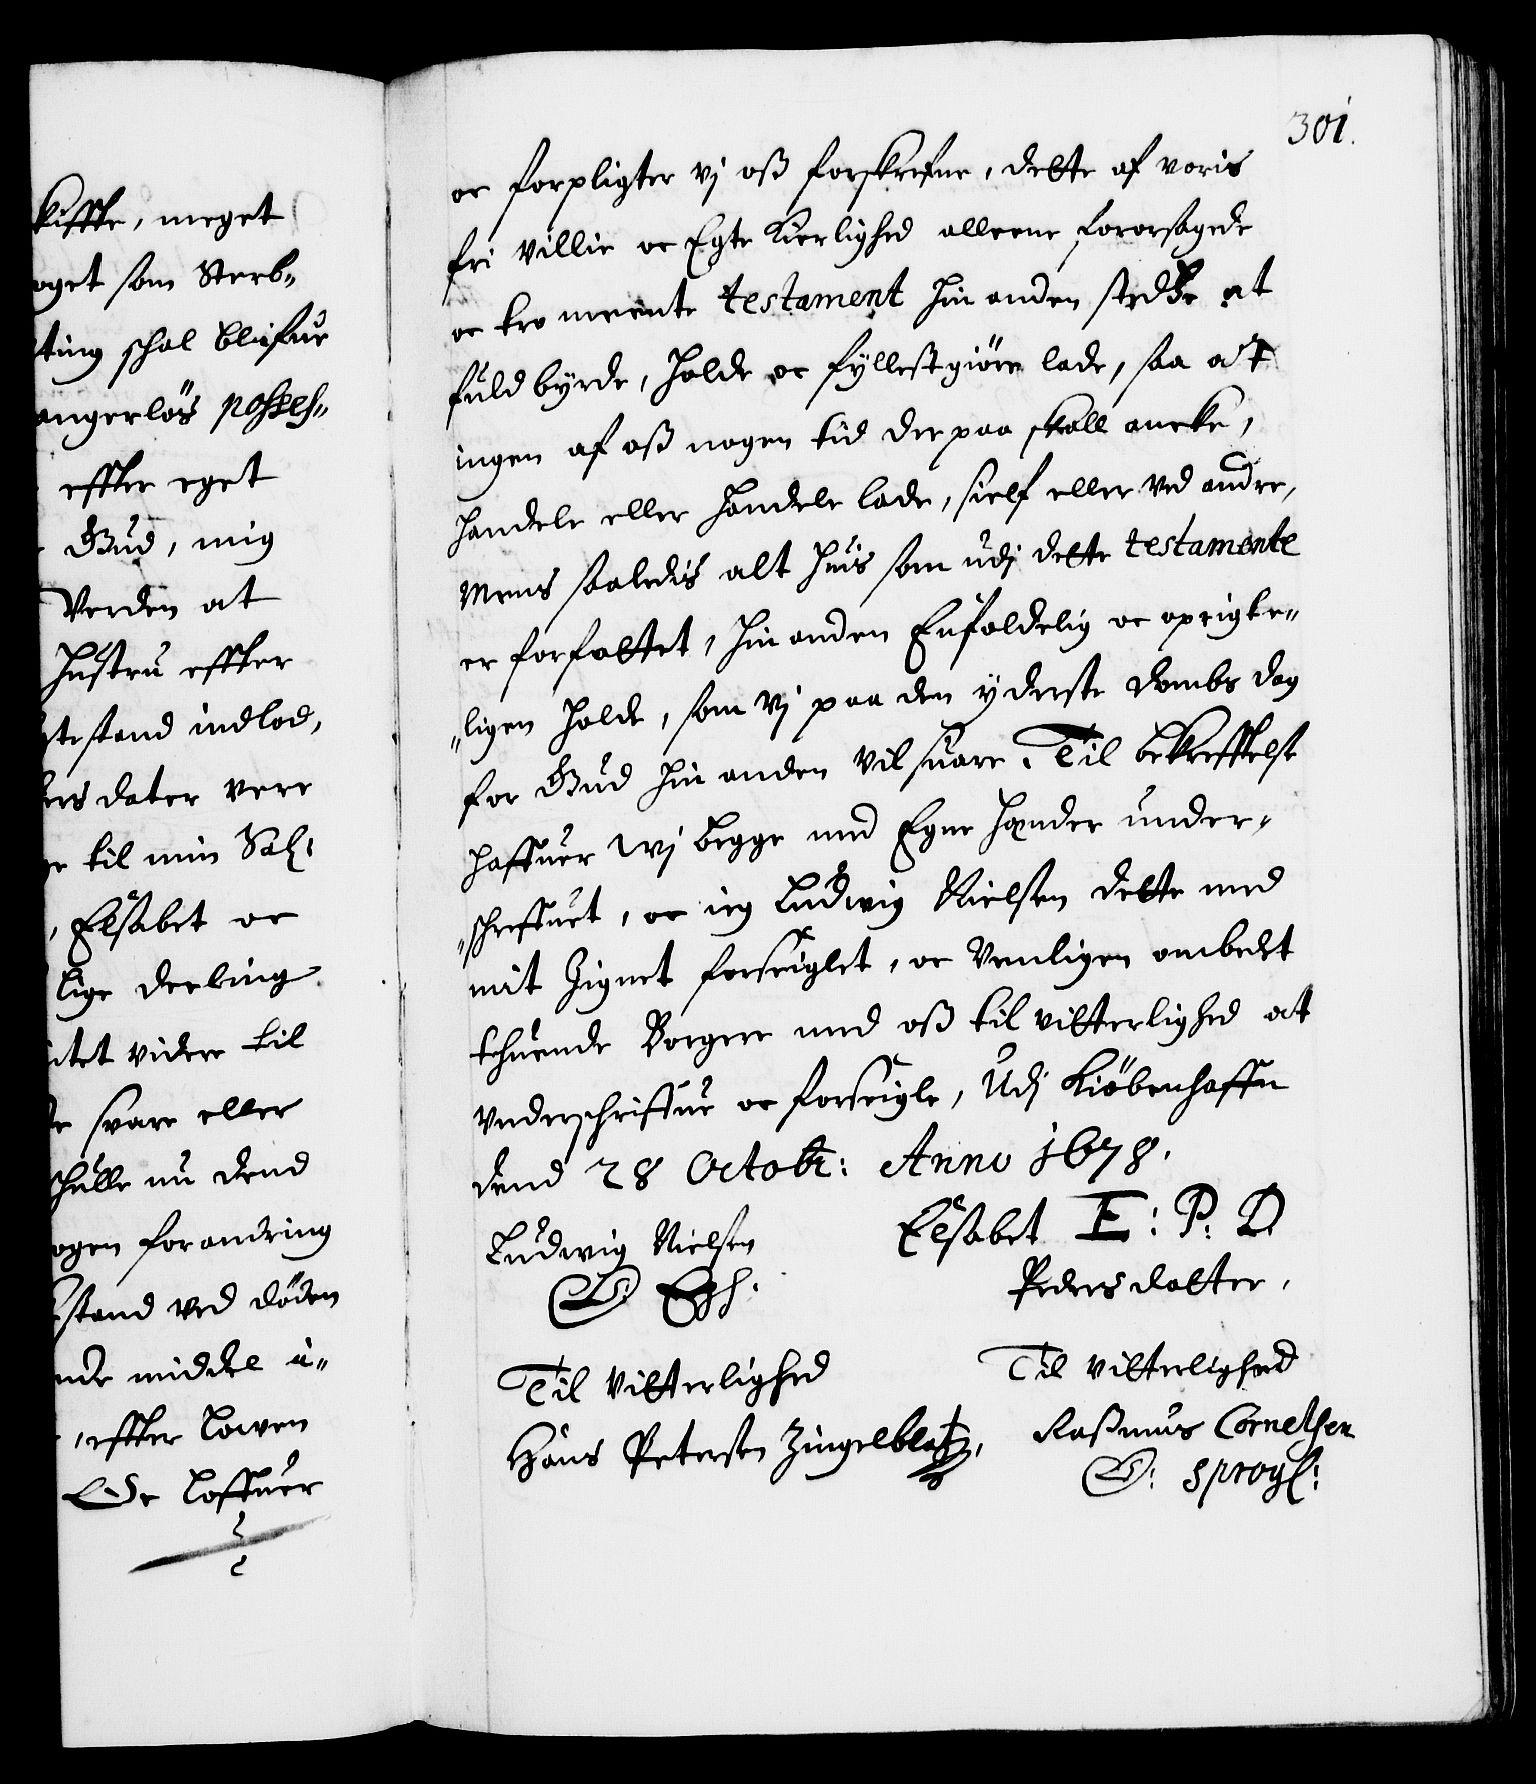 kiffte, meget
oget som Sterb„
ting schal blifue
angerlös posses„
effter eget
Gud, mig
Verden at
Hustru effter
testand indlod,
ers dater vere
er til min Sal:
, Elsabet oc
lige deeling
ntet videre til
e svare eller
schulle nu dend
ogen forandring
stand ved döden
nde middel u„
, effter Lowen
De Laffuer
301.
oc forpligter vi oß forskrefne, dette af voris
fri villie oc Egte Kierlighed alleene foraarsagede
oc tro meente testament hin anden stedtze at
fuld byrde, holde oc fyllestgiöre lade, saa at
ingen af oß nogen tid der paa skall ancke,
handele eller handele lade, sielf eller ved andre,
Mens saaledis alt huis som udj dette testamente
er forfattet, hin anden Eenfoldelig oc oprigte„
„ligen holde, som vj paa den yderste Dombs dag
for Gud hin anden vil suare. Til bekrefftelse
haffuer wj begge med Egne Hænder under„
„schreffuet, oc ieg Ludwig Nielsen dette med
mit Zignet forseiglet, oc venligen ombedet
thuende Borgere med oß til vitterlighed at
vnderschriffue oc forseigle, Udj Kiöbenhaffn
dend 28 Octobr: Anno 1678.
Ludwig Nielsen
Elsabet E: P: D
Peders datter,
Til vitterlighed
Til vitterlighed
Hans Petersen Zingelblatz,
Raßmus Cornelsen